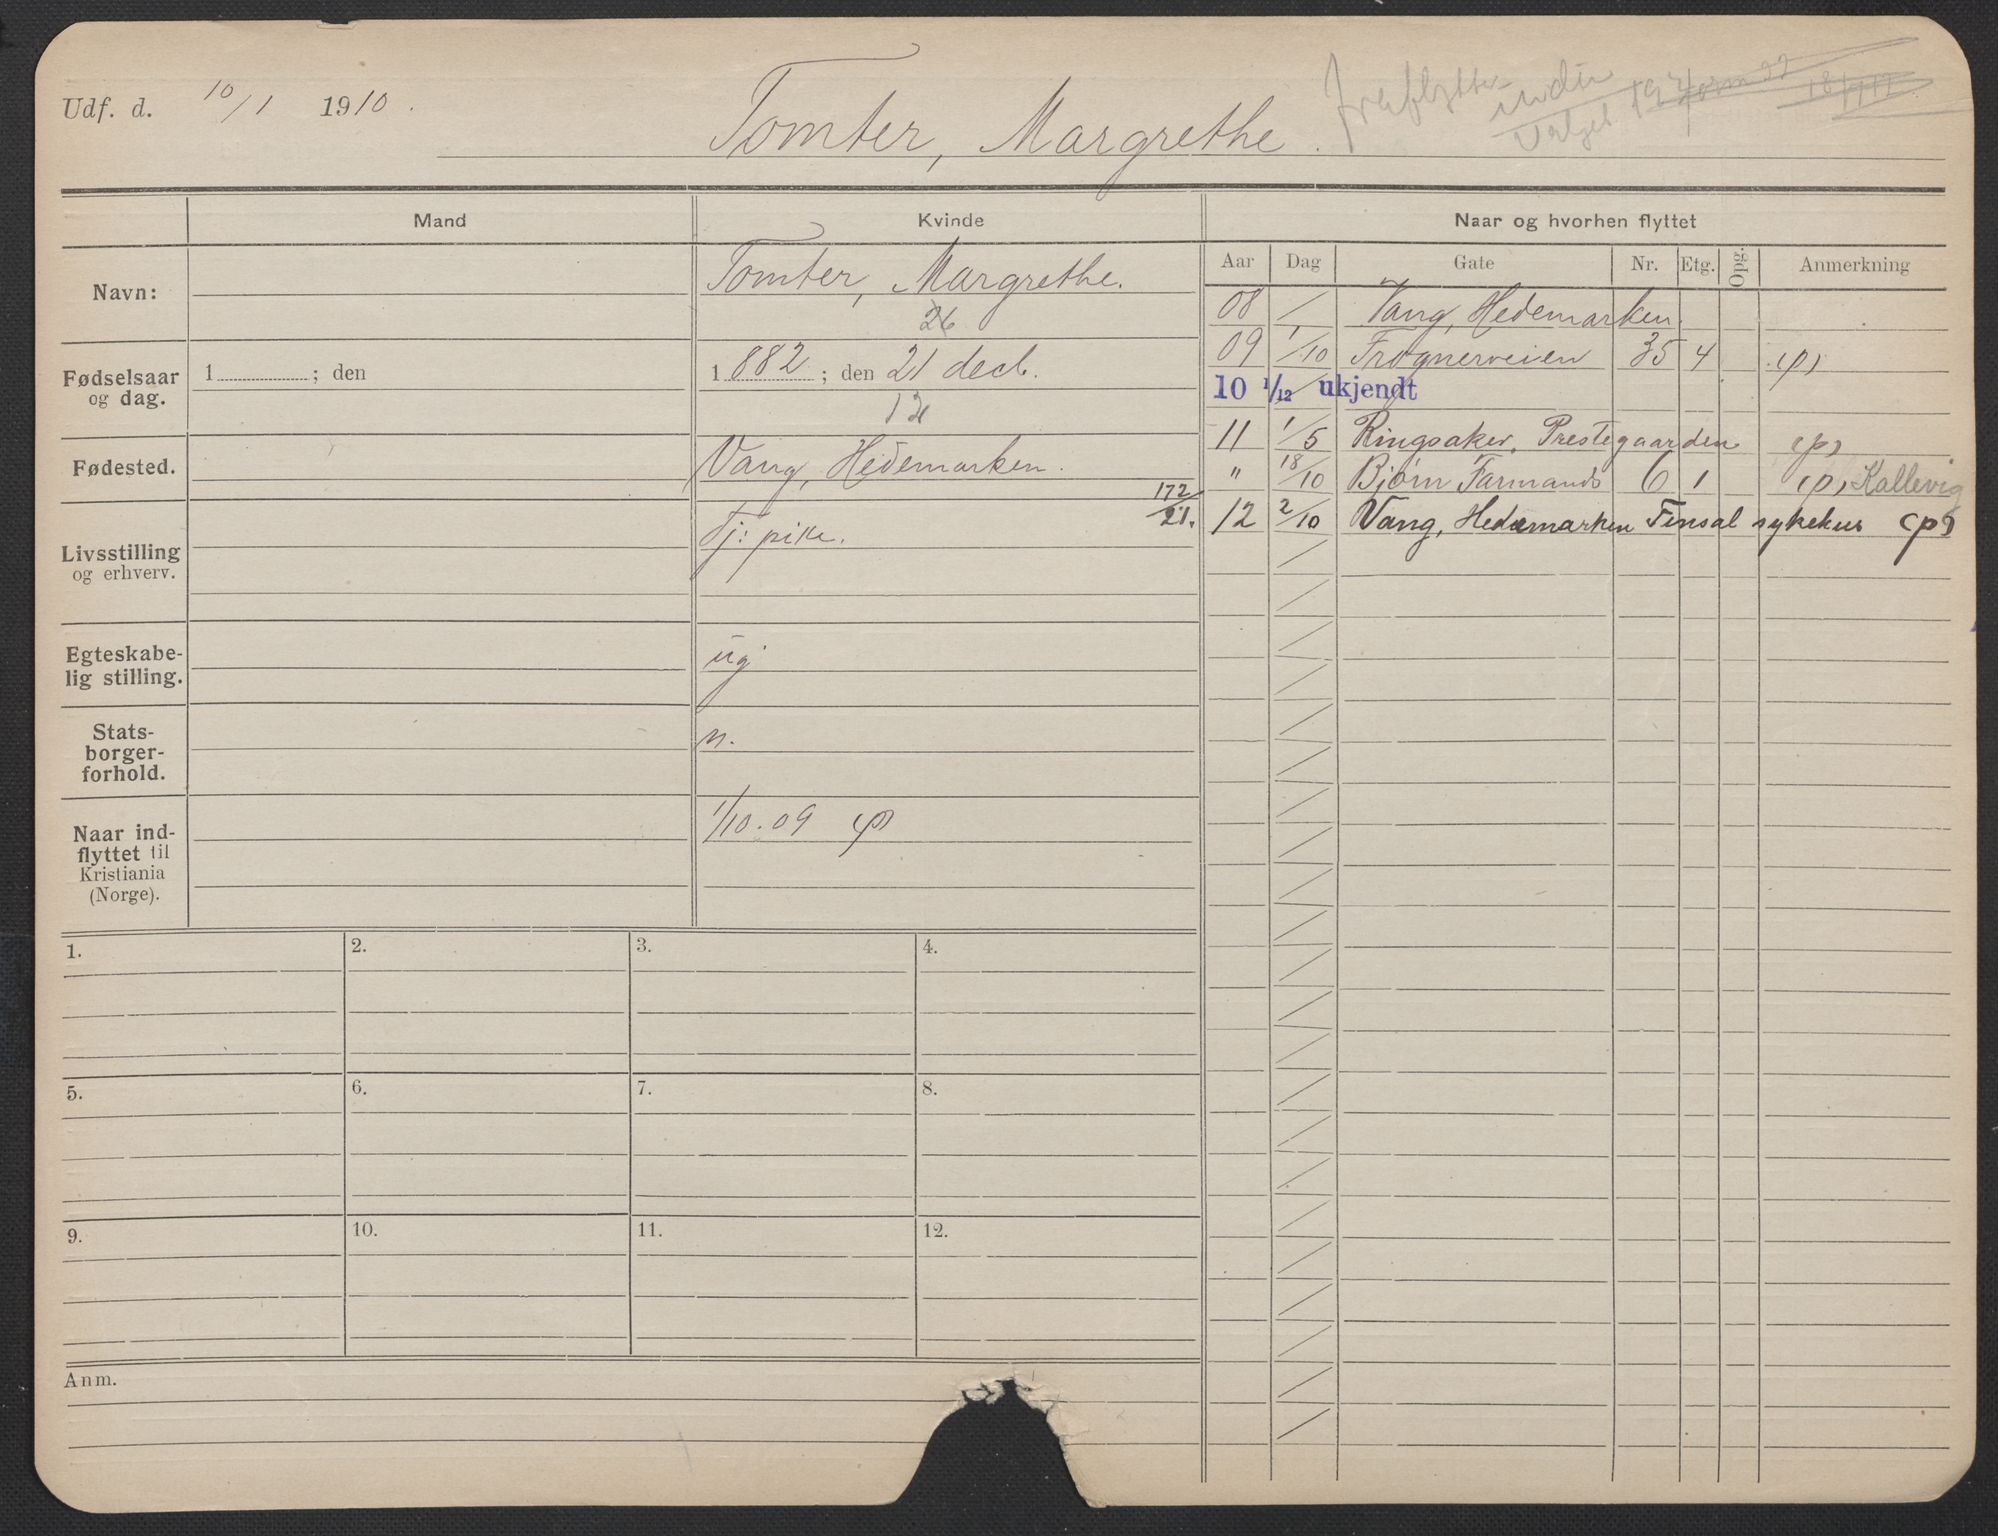 Udf. d. 10/1 1910.
Tomter, Margrethe.
Mand
Kvinde
Naar og hvorhen flyttet
Aar Dag Gate Nr. Etg. Opg. Anmerkning
Navn:
Tomter, Margrethe.
26
Fødselsaar og dag.
1 ; den
1 882 ; den 21 decb.
12
Fødested.
Vang, Hedemarken.
172/21.
Livsstilling og erhverv.
Tj: pike.
Egteskabe-
lig stilling.
ug
Stats-
borger-
forhold.
n.
Naar ind-
flyttet til
Kristiania
(Norge).
1/10.09 (p)
08 / Vang, Hedemarken.
09 1/10 Frognerveien 35 4 (p)
10 1/12 ukjendt
11 1/5 Ringsaker, Prestegaarden (p)
" 18/10 Bjørn Farmands 6 1 (p) Kallevig
12 2/10 Vang, Hedemarken Finsal sykehus (p)
1. 2. 3. 4.
5. 6. 7. 8.
9. 10. 11. 12.
Anm.